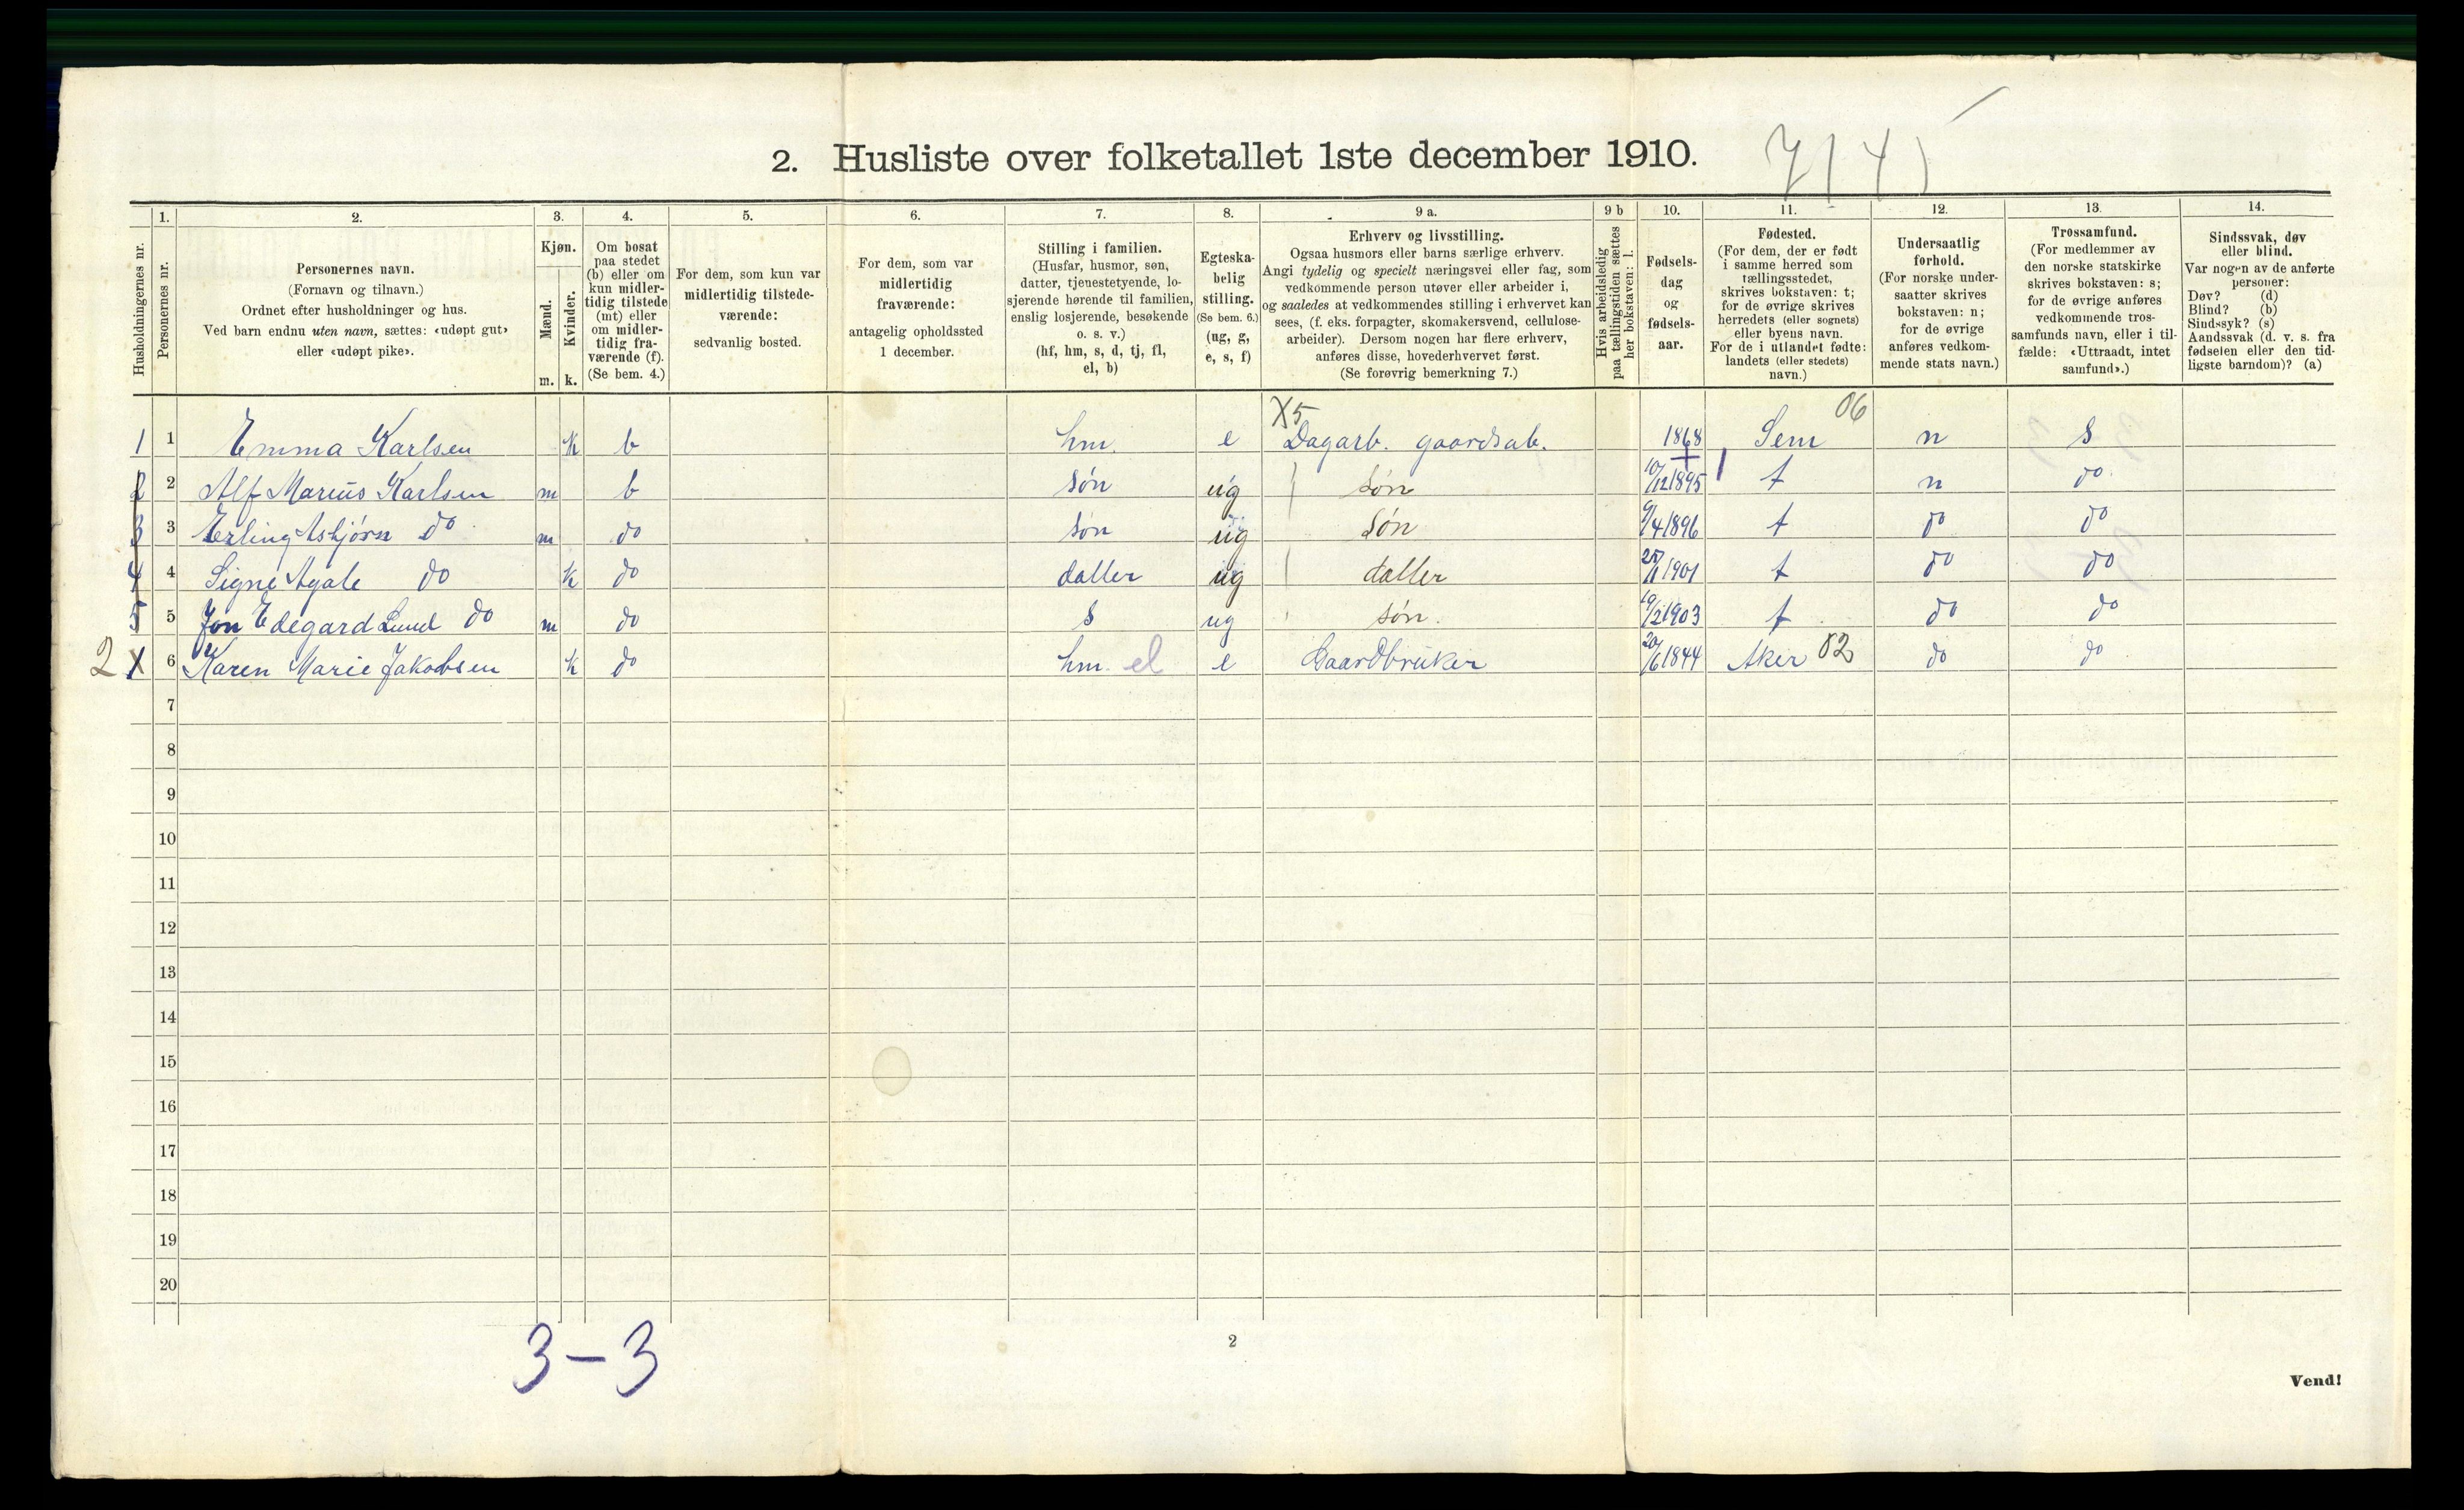 2. Husliste over folketallet 1ste december 1910.
7 | 4 )
1. 2. 3. 4. 5. 6. 7. 8. 9 a. 9 b 10. 11. 12. 13. 14.
Husholdningernes nr.
Personernes nr.
Personernes navn.
(Fornavn og tilnavn.)
Ordnet efter husholdninger og hus.
Ved barn endnu uten navn, sættes: «udøpt gut»
eller «udøpt pike».
Kjøn.
Mænd.
Kvinder.
m. k.
Om bosat
paa stedet
(b) eller om
kun midler-
tidig tilstede
(mt) eller
om midler-
tidig fra-
værende (f).
(Se bem. 4.)
For dem, som kun var
midlertidig tilstede-
værende:
sedvanlig bosted.
For dem, som var
midlertidig
fraværende:
antagelig opholdssted
1 december.
Stilling i familien.
(Husfar, husmor, søn,
datter, tjenestetyende, lo-
sjerende hørende til familien,
enslig losjerende, besøkende
o. s. v.)
(hf, hm, s, d, tj, fl,
el, b)
Egteska-
belig
stilling.
(Se bem. 6.)
(ug, g,
e, s, f)
Erhverv og livsstilling.
Ogsaa husmors eller barns særlige erhverv.
Angi tydelig og specielt næringsvei eller fag, som
vedkommende person utøver eller arbeider i,
og saaledes at vedkommendes stilling i erhvervet kan
sees, (f. eks. forpagter, skomakersvend, cellulose-
arbeider). Dersom nogen har flere erhverv,
anføres disse, hovederhvervet først.
(Se forøvrig bemerkning 7.)
Hvis arbeidsledig
paa tællingstiden sættes
her bokstaven: l.
Fødsels-
dag
og
fødsels-
aar.
Fødested.
(For dem, der er født
i samme herred som
tællingsstedet,
skrives bokstaven: t;
for de øvrige skrives
herredets (eller sognets)
eller byens navn.
For de i utlandet fødte:
landets (eller stedets)
navn.)
Undersaatlig
forhold.
(For norske under-
saatter skrives
bokstaven: n;
for de øvrige
anføres vedkom-
mende stats navn.)
Trossamfund.
(For medlemmer av
den norske statskirke
skrives bokstaven: s;
for de øvrige anføres
vedkommende tros-
samfunds navn, eller i til-
fælde: «Uttraadt, intet
samfund».)
Sindssvak, døv
eller blind.
Var nogen av de anførte
personer:
Døv? (d)
Blind? (b)
Sindssyk? (s)
Aandssvak (d. v. s. fra
fødselen eller den tid-
ligste barndom)? (a)
X5 06
1 1 Emma Karlsen k b hm. e Dagarb. gaardsab. 1868 Sem n s
2 2 Alf Marius Karlsen m b søn ug søn 10/12 1895 t n do
3 3 Erling Asbjørn do m do søn ug søn 9/4 1896 t do do
4 4 Signe Agate do k do datter ug datter 1901 t do do
5 5 Jon Edegard Lund do m do s ug søn. 19/2 1903 t do do
2 X 6 Karen Marie Jakobsen k do hm. el e Gaardbruker 20/6 1844 Aker 02 do do
7
8
9
10
11
12
13
14
15
16
17
18
19
20
3 – 3
2
Vend!